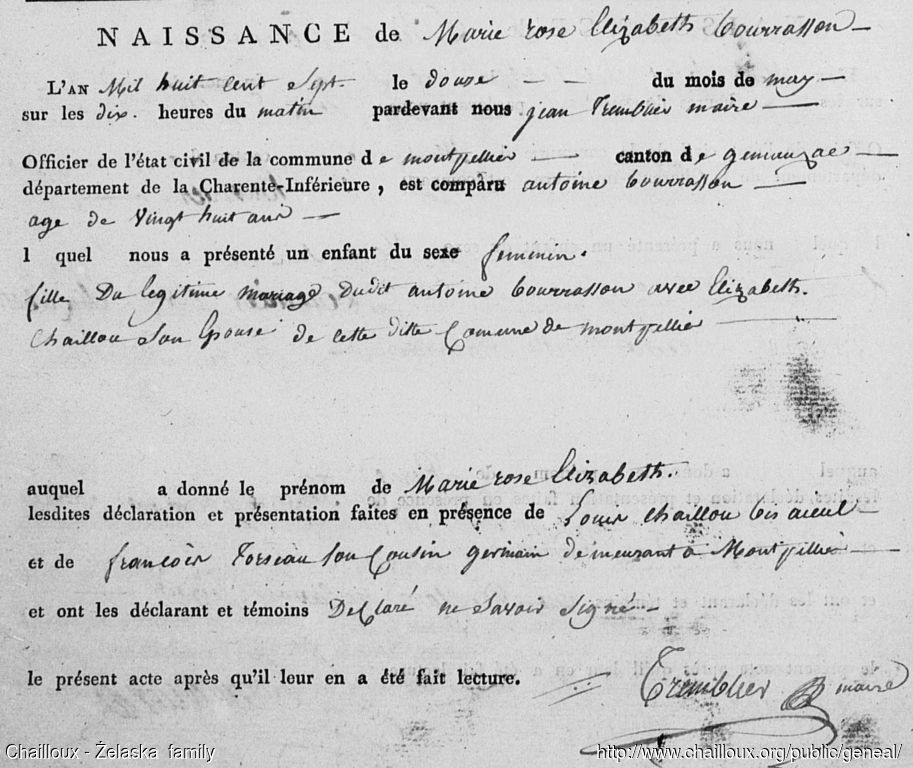 NAISSANCE de Marie rose Elizabeth Bourrasson
L'AN Mil huit Cent Sept. le douze du mois de may
sur les dix. heures du matin pardevant nous jean Tremblier maire
Officier de l'état civil de la commune de montpellier canton de gemauzac
département de la Charente-Inférieure, est comparu antoine bourrasson
age de vingt huit ans
l quel nous a présenté un enfant du sexe feminin.
fille Du legitime mariage Dudit antoine bourrasson avec Elizabeth.
Chaillou Son Epouse de cette ditte Comune de montpellier
auquel a donné le prénom de Marie rose Elizabeth.
lesdites déclaration et présentation faites en présence de Louis Chaillou bis aieul
et de francois Torseau Son Cousin germain demeurant a Montpellier
et ont les déclarant et témoins Declaré ne Savoir Signé
le présent acte après qu'il leur en a été fait lecture. Tremblier maire
Chailloux - Želaska family http://www.chailloux.org/public/geneal/